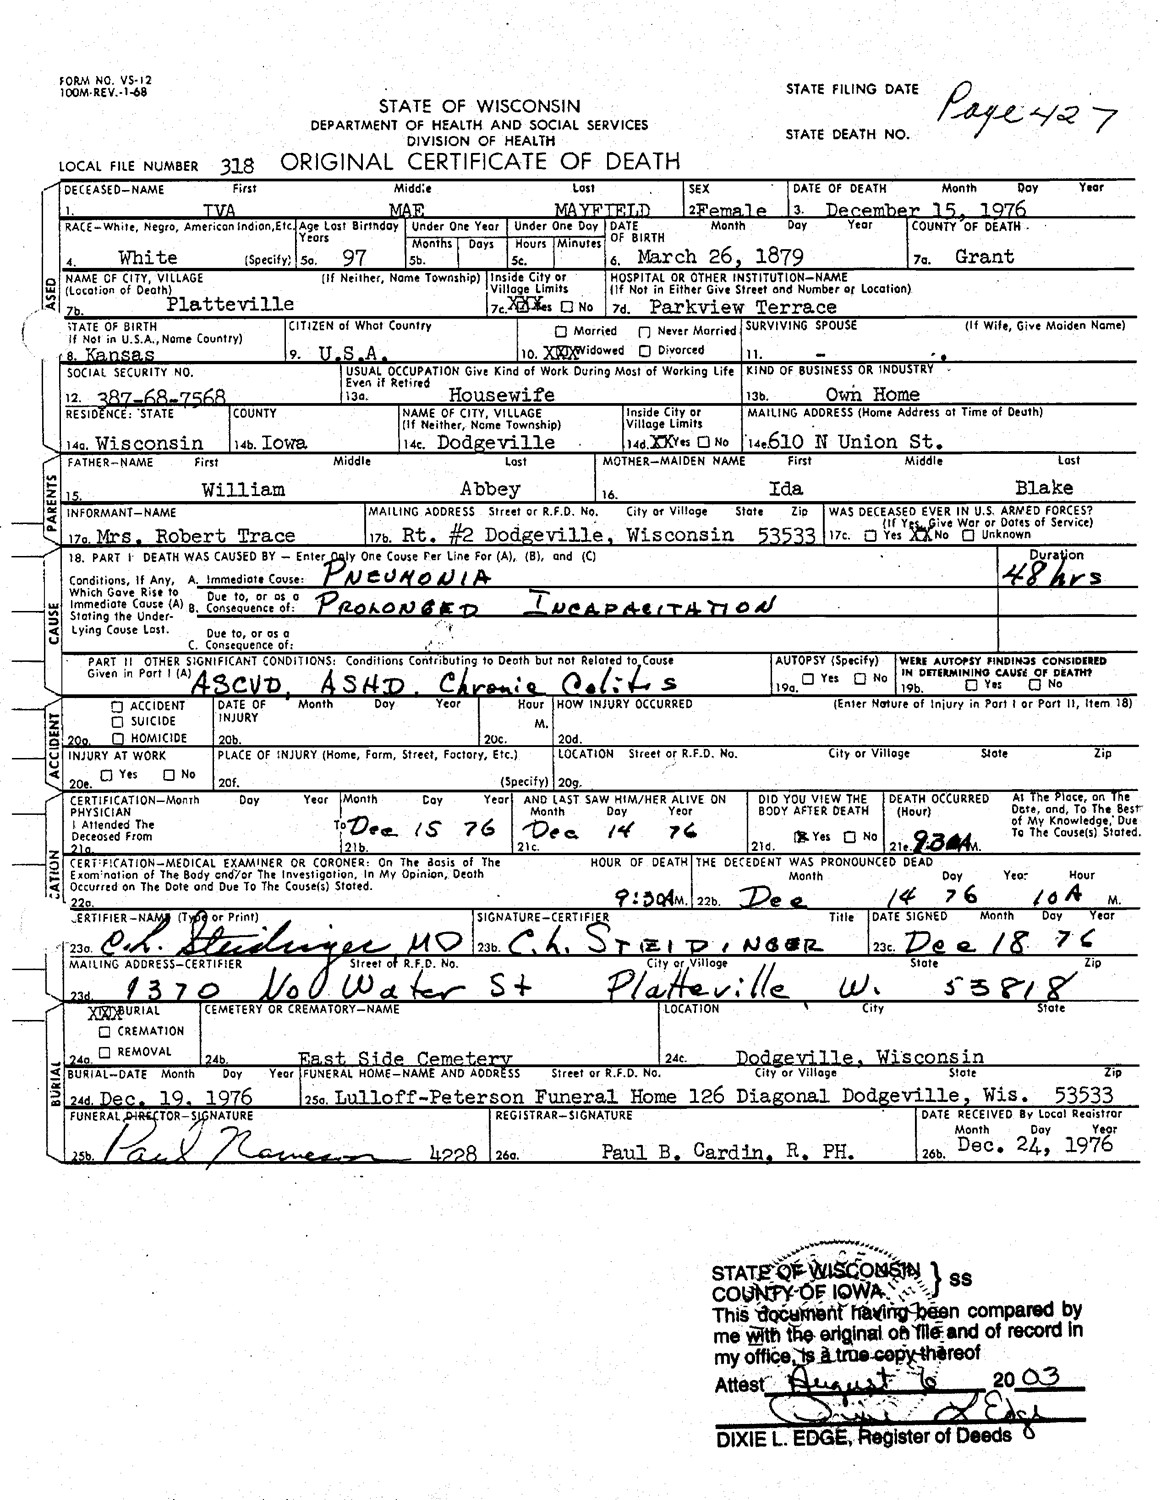 FORM NO. VS-12
100M-REV.-1-68
STATE FILING DATE
Page 427
STATE OF WISCONSIN
DEPARTMENT OF HEALTH AND SOCIAL SERVICES
DIVISION OF HEALTH
STATE DEATH NO.
LOCAL FILE NUMBER 318 ORIGINAL CERTIFICATE OF DEATH
DECEASED—NAME First Middle Last SEX DATE OF DEATH Month Day Year
1. IVA MAE MAYFIELD 2. Female 3. December 15, 1976
RACE—White, Negro, American Indian, Etc. Age Last Birthday Under One Year Under One Day DATE Month Day Year COUNTY OF DEATH
Years Months Days Hours Minutes OF BIRTH
4. White (Specify) 5a. 97 5b. 5c. 6. March 26, 1879 7a. Grant
NAME OF CITY, VILLAGE (If Neither, Name Township) Inside City or HOSPITAL OR OTHER INSTITUTION—NAME
(Location of Death) Village Limits (If Not in Either Give Street and Number or Location)
7b. Platteville 7c. XXX Yes No 7d. Parkview Terrace
STATE OF BIRTH CITIZEN of What Country Married Never Married SURVIVING SPOUSE (If Wife, Give Maiden Name)
If Not in U.S.A., Name Country)
8. Kansas 9. U.S.A. 10. XXX Widowed Divorced 11. -
SOCIAL SECURITY NO. USUAL OCCUPATION Give Kind of Work During Most of Working Life KIND OF BUSINESS OR INDUSTRY
Even if Retired
12. 387-68-7568 13a. Housewife 13b. Own Home
RESIDENCE: STATE COUNTY NAME OF CITY, VILLAGE Inside City or MAILING ADDRESS (Home Address at Time of Death)
(If Neither, Name Township) Village Limits
14a. Wisconsin 14b. Iowa 14c. Dodgeville 14d. XX Yes No 14e. 610 N Union St.
FATHER—NAME First Middle Last MOTHER—MAIDEN NAME First Middle Last
15. William Abbey 16. Ida Blake
PARENTS
INFORMANT—NAME MAILING ADDRESS Street or R.F.D. No. City or Village State Zip WAS DECEASED EVER IN U.S. ARMED FORCES?
(If Yes, Give War or Dates of Service)
17a. Mrs. Robert Trace 17b. Rt. #2 Dodgeville, Wisconsin 53533 17c. Yes XX No Unknown
18. PART I DEATH WAS CAUSED BY — Enter Only One Cause Per Line For (A), (B), and (C) Duration
Conditions, If Any, A. Immediate Cause: PNEUMONIA 48 hrs
Which Gave Rise to Due to, or as a
Immediate Cause (A) B. Consequence of: PROLONGED INCAPACITATION
Stating the Under-
Lying Cause Last. Due to, or as a
C. Consequence of:
CAUSE
PART II OTHER SIGNIFICANT CONDITIONS: Conditions Contributing to Death but not Related to Cause AUTOPSY (Specify) WERE AUTOPSY FINDINGS CONSIDERED
Given in Part I (A) ASCVD, ASHD. Chronic Colitis Yes No IN DETERMINING CAUSE OF DEATH?
19a. 19b. Yes No
ACCIDENT DATE OF Month Day Year Hour HOW INJURY OCCURRED (Enter Nature of Injury in Part I or Part II, Item 18)
SUICIDE INJURY M.
20a. HOMICIDE 20b. 20c. 20d.
ACCIDENT
INJURY AT WORK PLACE OF INJURY (Home, Farm, Street, Factory, Etc.) LOCATION Street or R.F.D. No. City or Village State Zip
20e. Yes No 20f. (Specify) 20g.
CERTIFICATION—Month Day Year Month Day Year AND LAST SAW HIM/HER ALIVE ON DID YOU VIEW THE DEATH OCCURRED At The Place, on The
PHYSICIAN Month Day Year BODY AFTER DEATH (Hour) Date, and, To The Best
I Attended The of My Knowledge, Due
Deceased From To Dec 15 76 Dec 14 76 Yes No 9:30A M. To The Cause(s) Stated.
21a. 21b. 21c. 21d. 21e.
CERTIFICATION—MEDICAL EXAMINER OR CORONER: On The Basis of The HOUR OF DEATH THE DECEDENT WAS PRONOUNCED DEAD
Examination of The Body and/or The Investigation, In My Opinion, Death Month Day Year Hour
Occurred on The Date and Due To The Cause(s) Stated.
22a. 9:30A M. 22b. Dec 14 76 10 A M.
CERTIFIER—NAME (Type or Print) SIGNATURE—CERTIFIER Title DATE SIGNED Month Day Year
23a. C.L. Steidinger MD 23b. C.L. STEIDINGER 23c. Dec 18 76
MAILING ADDRESS—CERTIFIER Street of R.F.D. No. City or Village State Zip
23d. 1370 No Water St Platteville W. 53818
XXX BURIAL CEMETERY OR CREMATORY—NAME LOCATION City State
CREMATION
24a. REMOVAL 24b. East Side Cemetery 24c. Dodgeville, Wisconsin
BURIAL
BURIAL—DATE Month Day Year FUNERAL HOME—NAME AND ADDRESS Street or R.F.D. No. City or Village State Zip
24d. Dec. 19, 1976 25a. Lulloff-Peterson Funeral Home 126 Diagonal Dodgeville, Wis. 53533
FUNERAL DIRECTOR—SIGNATURE REGISTRAR—SIGNATURE DATE RECEIVED By Local Registrar
Month Day Year
25b. Paul 4228 26a. Paul B. Cardin, R. PH. 26b. Dec. 24, 1976
STATE OF WISCONSIN } SS
COUNTY OF IOWA
This document having been compared by
me with the original on file and of record in
my office, is a true copy thereof
Attest August 6 2003
Dixie L Edge
DIXIE L. EDGE, Register of Deeds